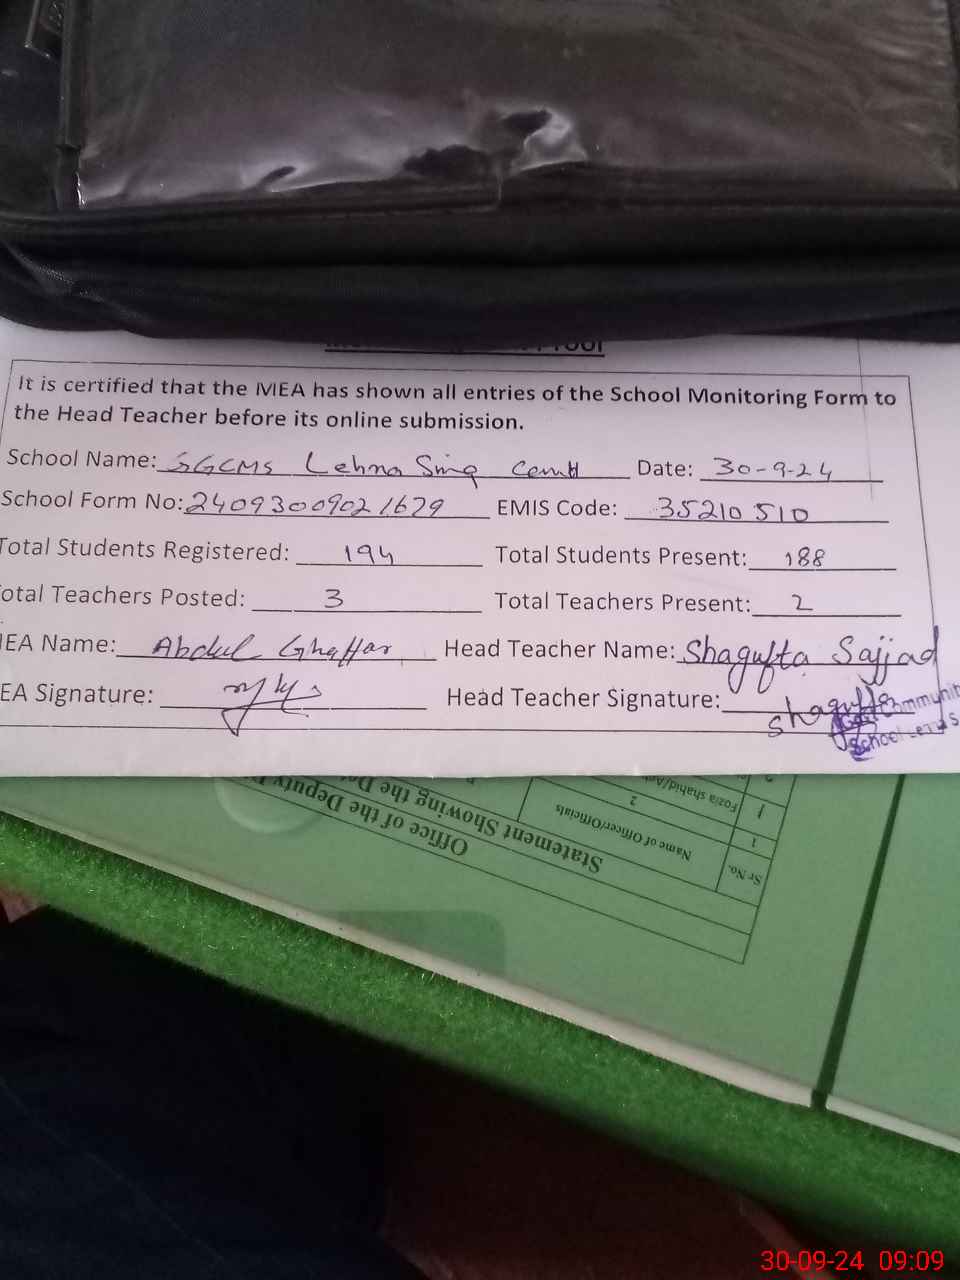 It is certified that the MEA has shown all entries of the School Monitoring Form to
the Head Teacher before its online submission.
School Name: GGCMS Lehna Sing Cantt Date: 30-9-24
School Form No: 24093009021679 EMIS Code: 35210510
Total Students Registered: 194 Total Students Present: 188
otal Teachers Posted: 3 Total Teachers Present: 2
MEA Name: Abdul Ghaffar Head Teacher Name: Shagufta Sajjad
EA Signature: Head Teacher Signature: Shagufta
Community
School
Office of the Deputy
Statement Showing the
Sr No. Name of Officer/Officials
1 2
1 Fozia shahid/
30-09-24 09:09